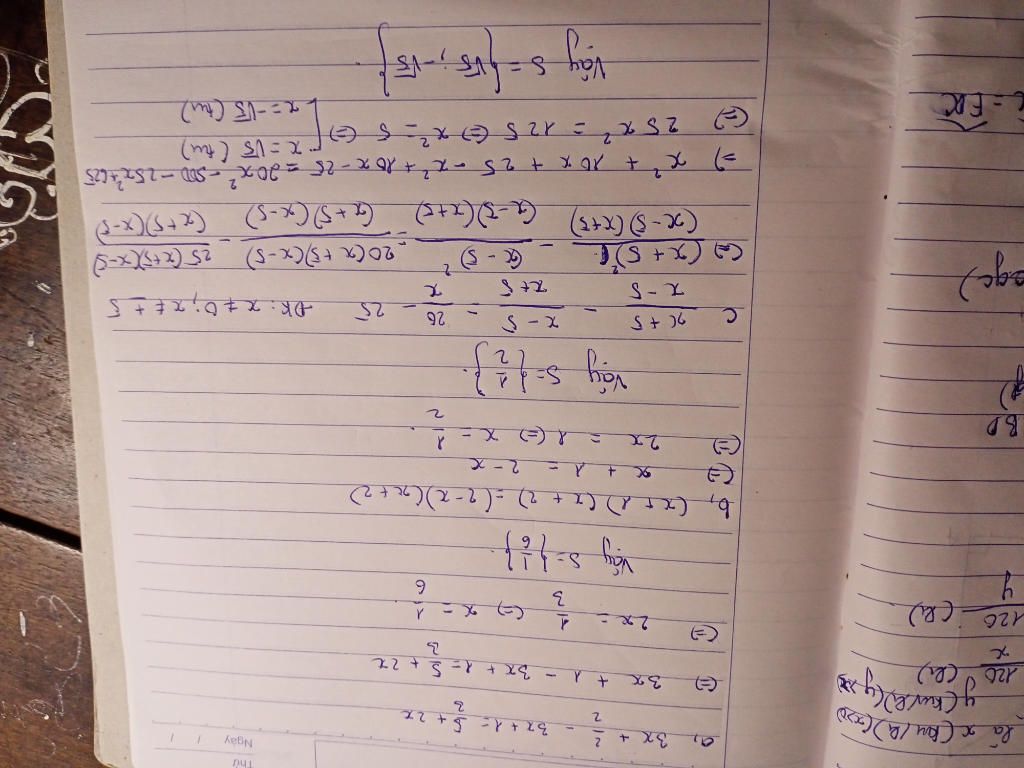 Thứ
Ngày / /
a, 3x + 1/2 - 3x + 1 = 5/3 + 2x
(=) 3x + 1 - 3x + 1 = 5/3 + 2x
(=) 2x = 1/3 (=) x = 1/6
Vậy S = {1/6}.
b, (x + 1)(x + 2) = (2 - x)(x + 2)
(=) x + 1 = 2 - x
(=) 2x = 1 (=) x = 1/2.
Vậy S = {1/2}.
c x + 5/x - 5 - x - 5/x + 5 - 20/x - 25 ĐK: x ≠ 0; x ≠ ± 5
(=) (x + 5)²/(x - 5)(x + 5) - (x - 5)²/(x - 5)(x + 5) = 20(x + 5)(x - 5)/(x + 5)(x - 5) - 25(x + 5)(x - 5)/(x + 5)(x - 5)
=) x² + 10x + 25 - x² + 10x - 25 = 20x² - 500 - 25x² + 625
(=) 25x² = 125 (=) x² = 5 (=) [ x = √5 (tm)
x = -√5 (tm)
Vậy S = {√5; -√5}.
là x (km/h) (x>0)
y (km/h) (y
120/x (h)
120/y (h)
BD